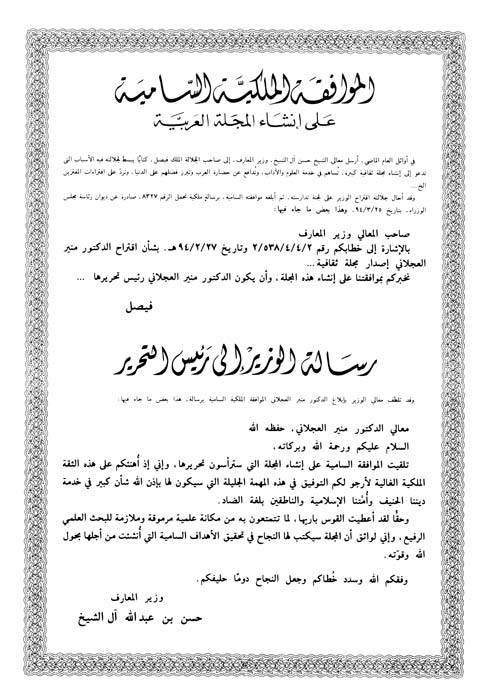 الموافقة الملكية السامية
على إنشاء المجلة العربية
في أوائل العام الماضي، أرسل معالي الشيخ حسن آل الشيخ، وزير المعارف، إلى صاحب الجلالة الملك فيصل، كتابًا يبسط لجلالته فيه الأسباب التي
تدعو إلى إنشاء مجلة ثقافية كبيرة، تُساهم في خدمة العلوم والآداب، وتُدافع عن حضارة العرب وتبرز فضلهم على الدنيا، وتردّ على افتراءات المفترين
الخ...
وقد أحال جلالته اقتراح الوزير على لجنة تدارسته، ثم أبلغه موافقته السامية، برسالةٍ ملكية تحمل الرقم ٨٣٢٧، صادرة عن ديوان رئاسة مجلس
الوزراء، بتاريخ ٩٤/٣/٢٥، وهذا بعض ما جاء فيها:
صاحب المعالي وزير المعارف
بالإشارة إلى خطابكم رقم ٢/٥٣٨/٤/٤/٢ وتاريخ ٩٤/٢/٢٧هـ. بشأن اقتراح الدكتور منير
العجلاني إصدار مجلة ثقافية...
نخبركم بموافقتنا على إنشاء هذه المجلة، وأن يكون الدكتور منير العجلاني رئيس تحريرها ...
فيصل
رسالة الوزير إلى رئيس التحرير
وقد تلطف معالي الوزير بإبلاغ الدكتور منير العجلاني الموافقة الملكية السامية برسالة، هذا بعض ما جاء فيها:
معالي الدكتور منير العجلاني، حفظه الله
السلام عليكم ورحمة الله وبركاته،
تلقيت الموافقة السامية على إنشاء المجلة التي سترأسون تحريرها، وإني إذ أُهنئكم على هذه الثقة
الملكية الغالية لأرجو لكم التوفيق في هذه المهمة الجليلة التي سيكون لها بإذن الله شأن كبير في خدمة
ديننا الحنيف وأُمّتنا الإسلامية والناطقين بلغة الضاد.
وحقًّا لقد أعطيت القوس باريها، لما تتمتعون به من مكانة علمية مرموقة وملازمة للبحث العلمي
الرفيع، وإني لواثق أن المجلة سيكتب لها النجاح في تحقيق الأهداف السامية التي أُنشئت من أجلها بحول
الله وقوّته.
وفقكم الله وسدد خُطاكم وجعل النجاح دومًا حليفكم.
وزير المعارف
حسن بن عبدالله آل الشيخ